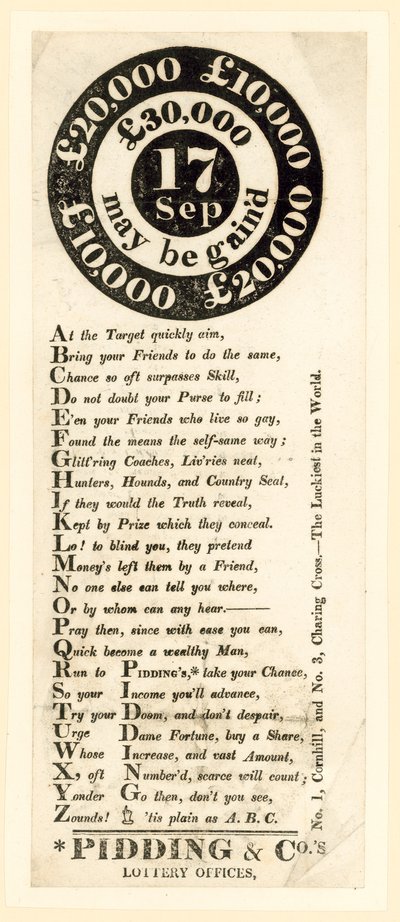 £20,000 £10,000
£30,000
17
Sep
may be gain'd
£10,000 £20,000
At the Target quickly aim,
Bring your Friends to do the same,
Chance so oft surpasses Skill,
Do not doubt your Purse to fill;
E'en your Friends who live so gay,
Found the means the self-same way;
Glitt'ring Coaches, Liv'ries neat,
Hunters, Hounds, and Country Seat,
If they would the Truth reveal,
Kept by Prize which they conceal.
Lo! to blind you, they pretend
Money's left them by a Friend,
No one else can tell you where,
Or by whom can any hear.——
Pray then, since with ease you can,
Quick become a wealthy Man,
Run to PIDDING's,* take your Chance,
So your Income you'll advance,
Try your Doom, and don't despair,
Urge Dame Fortune, buy a Share,
Whose Increase, and vast Amount,
X, oft Number'd, scarce will count;
Yonder Go then, don't you see,
Zounds! 'tis plain as A. B. C.
*PIDDING & Co.'s
LOTTERY OFFICES,
No. 1, Cornhill, and No. 3, Charing Cross.—The Luckiest in the World.